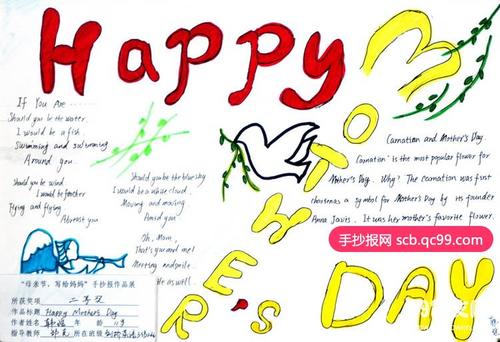 Happy
MOTHER'S DAY
If You Are
Should you be the water,
I would be a fish
Swimming and swimming
Around you.
Should you be wind
I would be feather
Flying and flying
Should you be the blue sky
I would be a white cloud,
Moving and moving
Amid you.
Oh, Mom,
That's you and me!
Carnation and Mother's Day.
Carnation is the most popular flower for
Mother's Day. Why? The carnation was first
as a symbol for Mother's Day by its founder
Anna Jarvis. It was her mother's favorite flower.
手抄报网 scb.qc99.com
“母亲节，写给妈妈”手抄报作品展
所获奖项 二等奖
作品标题 Happy Mother's Day
作者姓名 年龄
指导教师 所在班级